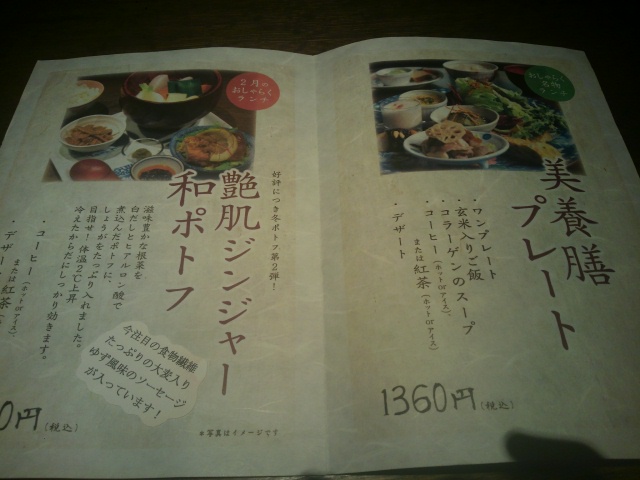 おしゃらく
名物
ランチ
美養膳
プレート
・ワンプレート
・玄米入りご飯
・コラーゲンのスープ
・コーヒー（ホットorアイス）、
または紅茶（ホットorアイス）
・デザート
1360円（税込）
2月の
おしゃらく
ランチ
好評につき冬ポトフ第2弾！
艶肌ジンジャー
和ポトフ
滋味豊かな根菜を
白だしとヒアルロン酸で
煮込んだポトフに、
しょうがをたっぷり入れました。
目指せ！体温2℃上昇
冷えたからだにしっかり効きます。
・コーヒー（ホットorアイス）、
または紅茶
・デザー
今注目の食物繊維
たっぷりの大麦入り
ゆず風味のソーセージ
が入っています！
0円（税込）
＊写真はイメージです